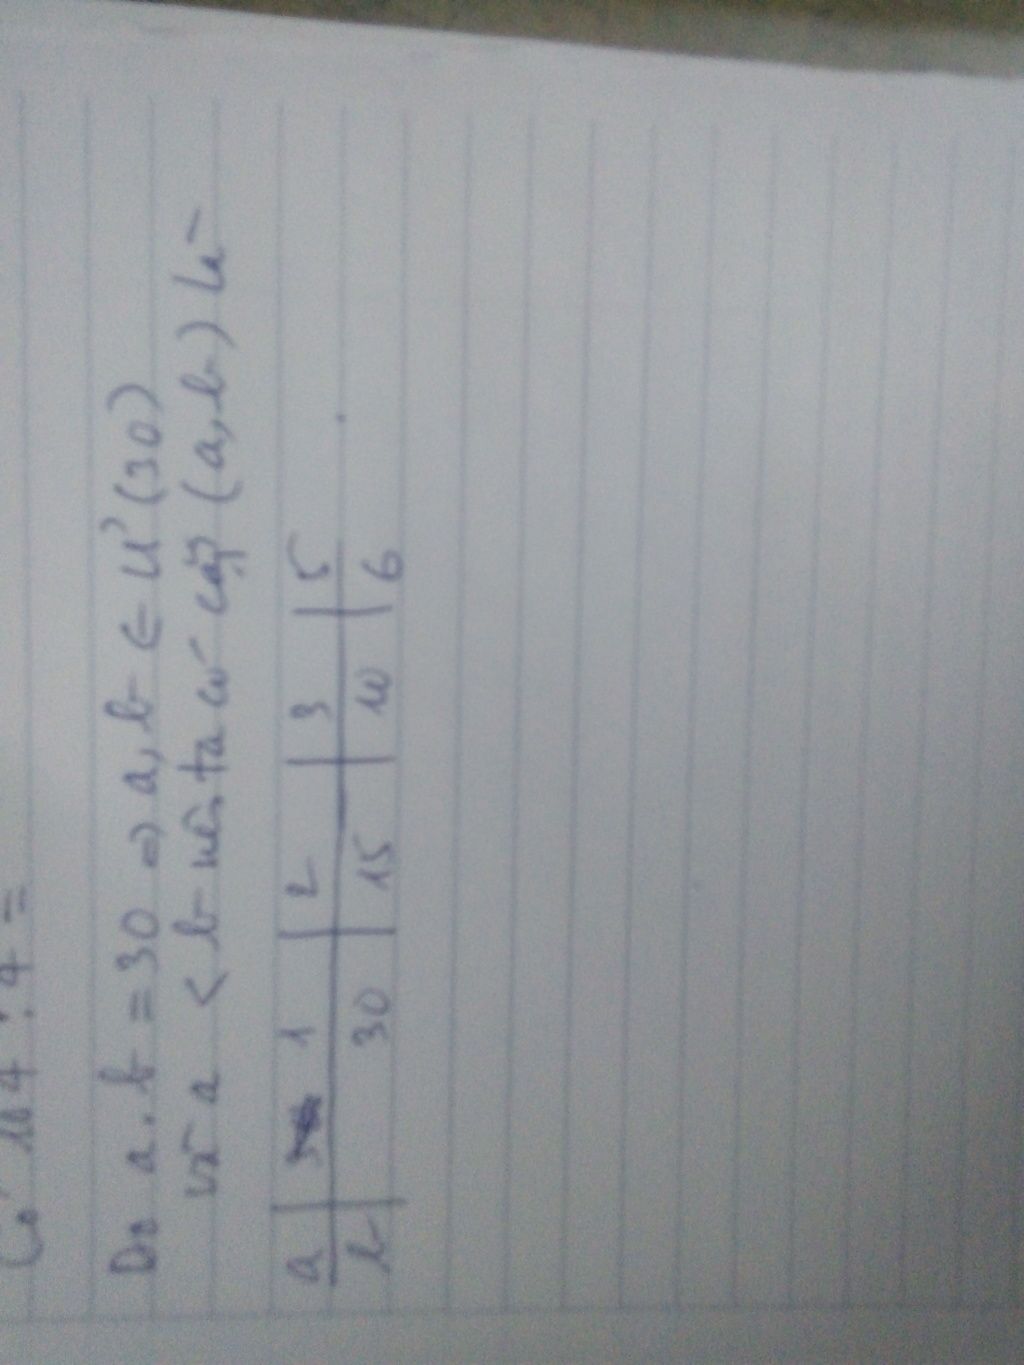 Có 114 : 4 =
Do a . b = 30 => a, b ∈ Ư (30)
và a < b nên ta có cặp (a, b) là
a | 1 | 2 | 3 | 5
b | 30 | 15 | 10 | 6